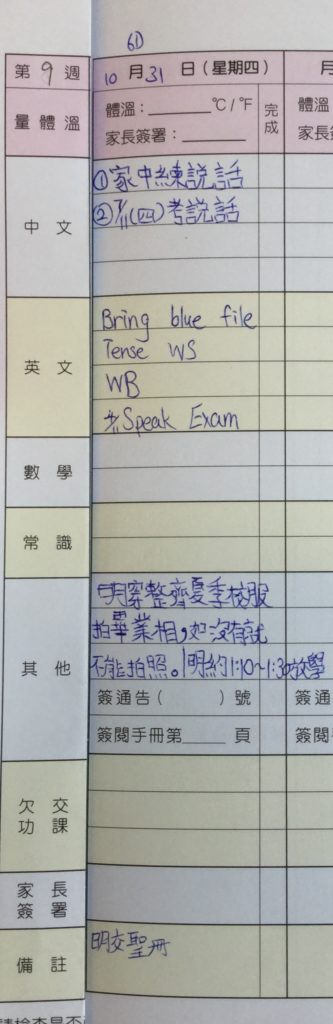 6D
第 9 週 10 月 31 日 (星期四) 月
量 體 溫 體溫：______ ℃/℉ 完成 體溫
家長簽署：______ 家長
中 文 ①家中練説話
②7/11(四)考説話
英 文 Bring blue file
Tense WS
WB
Speak Exam
數 學
常 識
其 他 明穿整齊夏季校服
拍畢業相，如沒有就
不能拍照。明約1:10~1:30放學
簽通告( )號 簽通
簽閱手冊第____頁 簽閱
欠 交 功 課
家 長 簽 署
備 註 明交聖冊